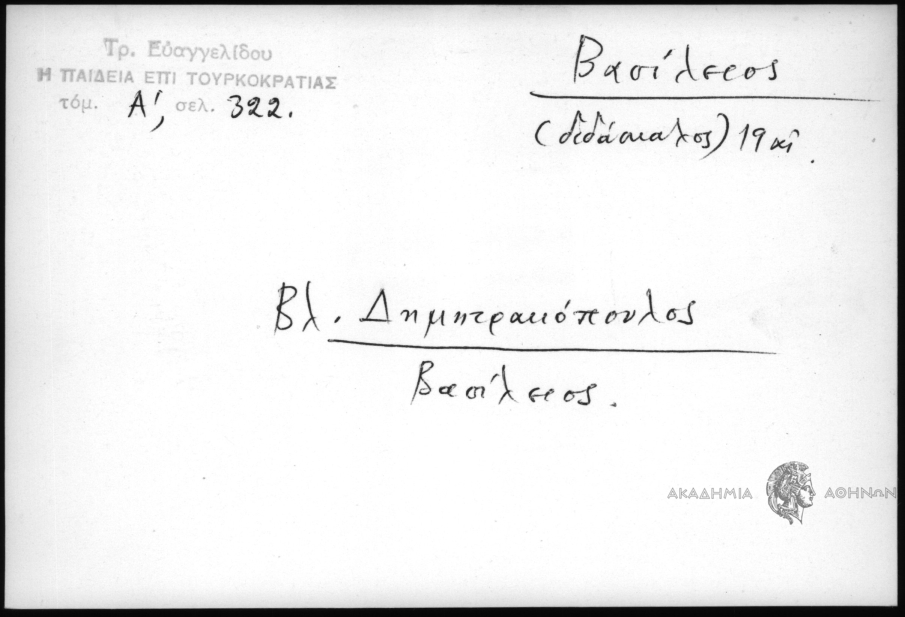 Τρ. Εὐαγγελίδου
Η ΠΑΙΔΕΙΑ ΕΠΙ ΤΟΥΡΚΟΚΡΑΤΙΑΣ
τόμ. Α', σελ. 322.
Βασίλειος
(διδάσκαλος) 19 αἰ.
Βλ. Δημητρακόπουλος
Βασίλειος.
ΑΚΑΔΗΜΙΑ ΑΘΗΝΩΝ